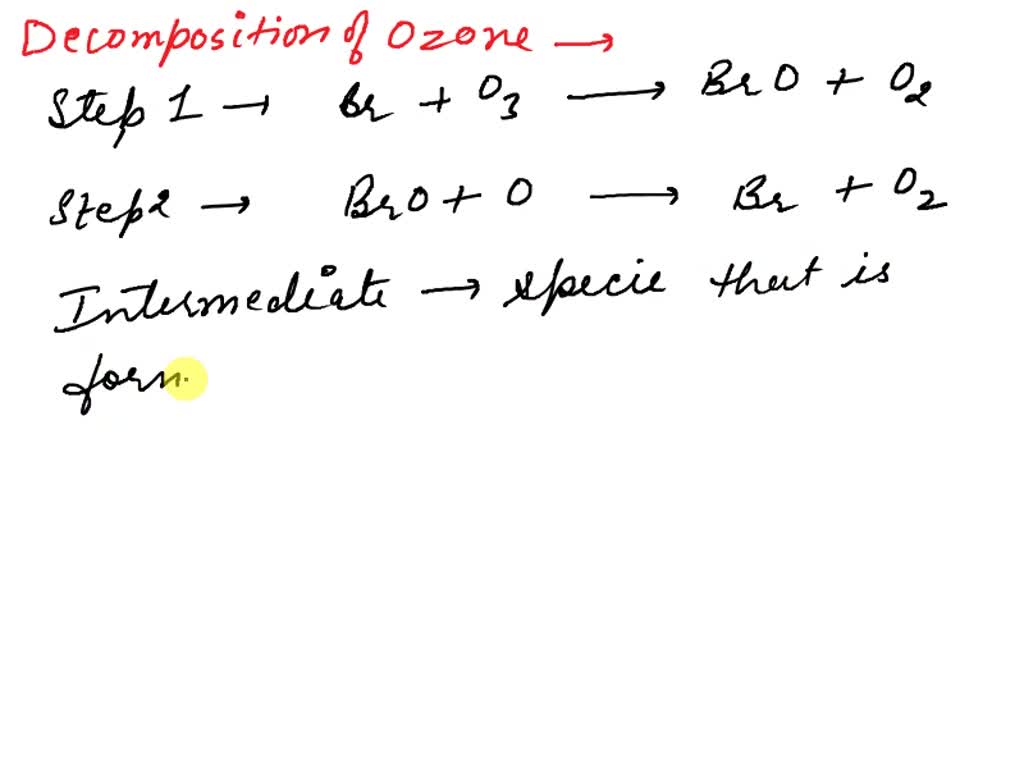 Decomposition of Ozone →
Step 1 → Br + O3 → BrO + O2
Step2 → BrO + O → Br + O2
Intermediate → specie that is
form